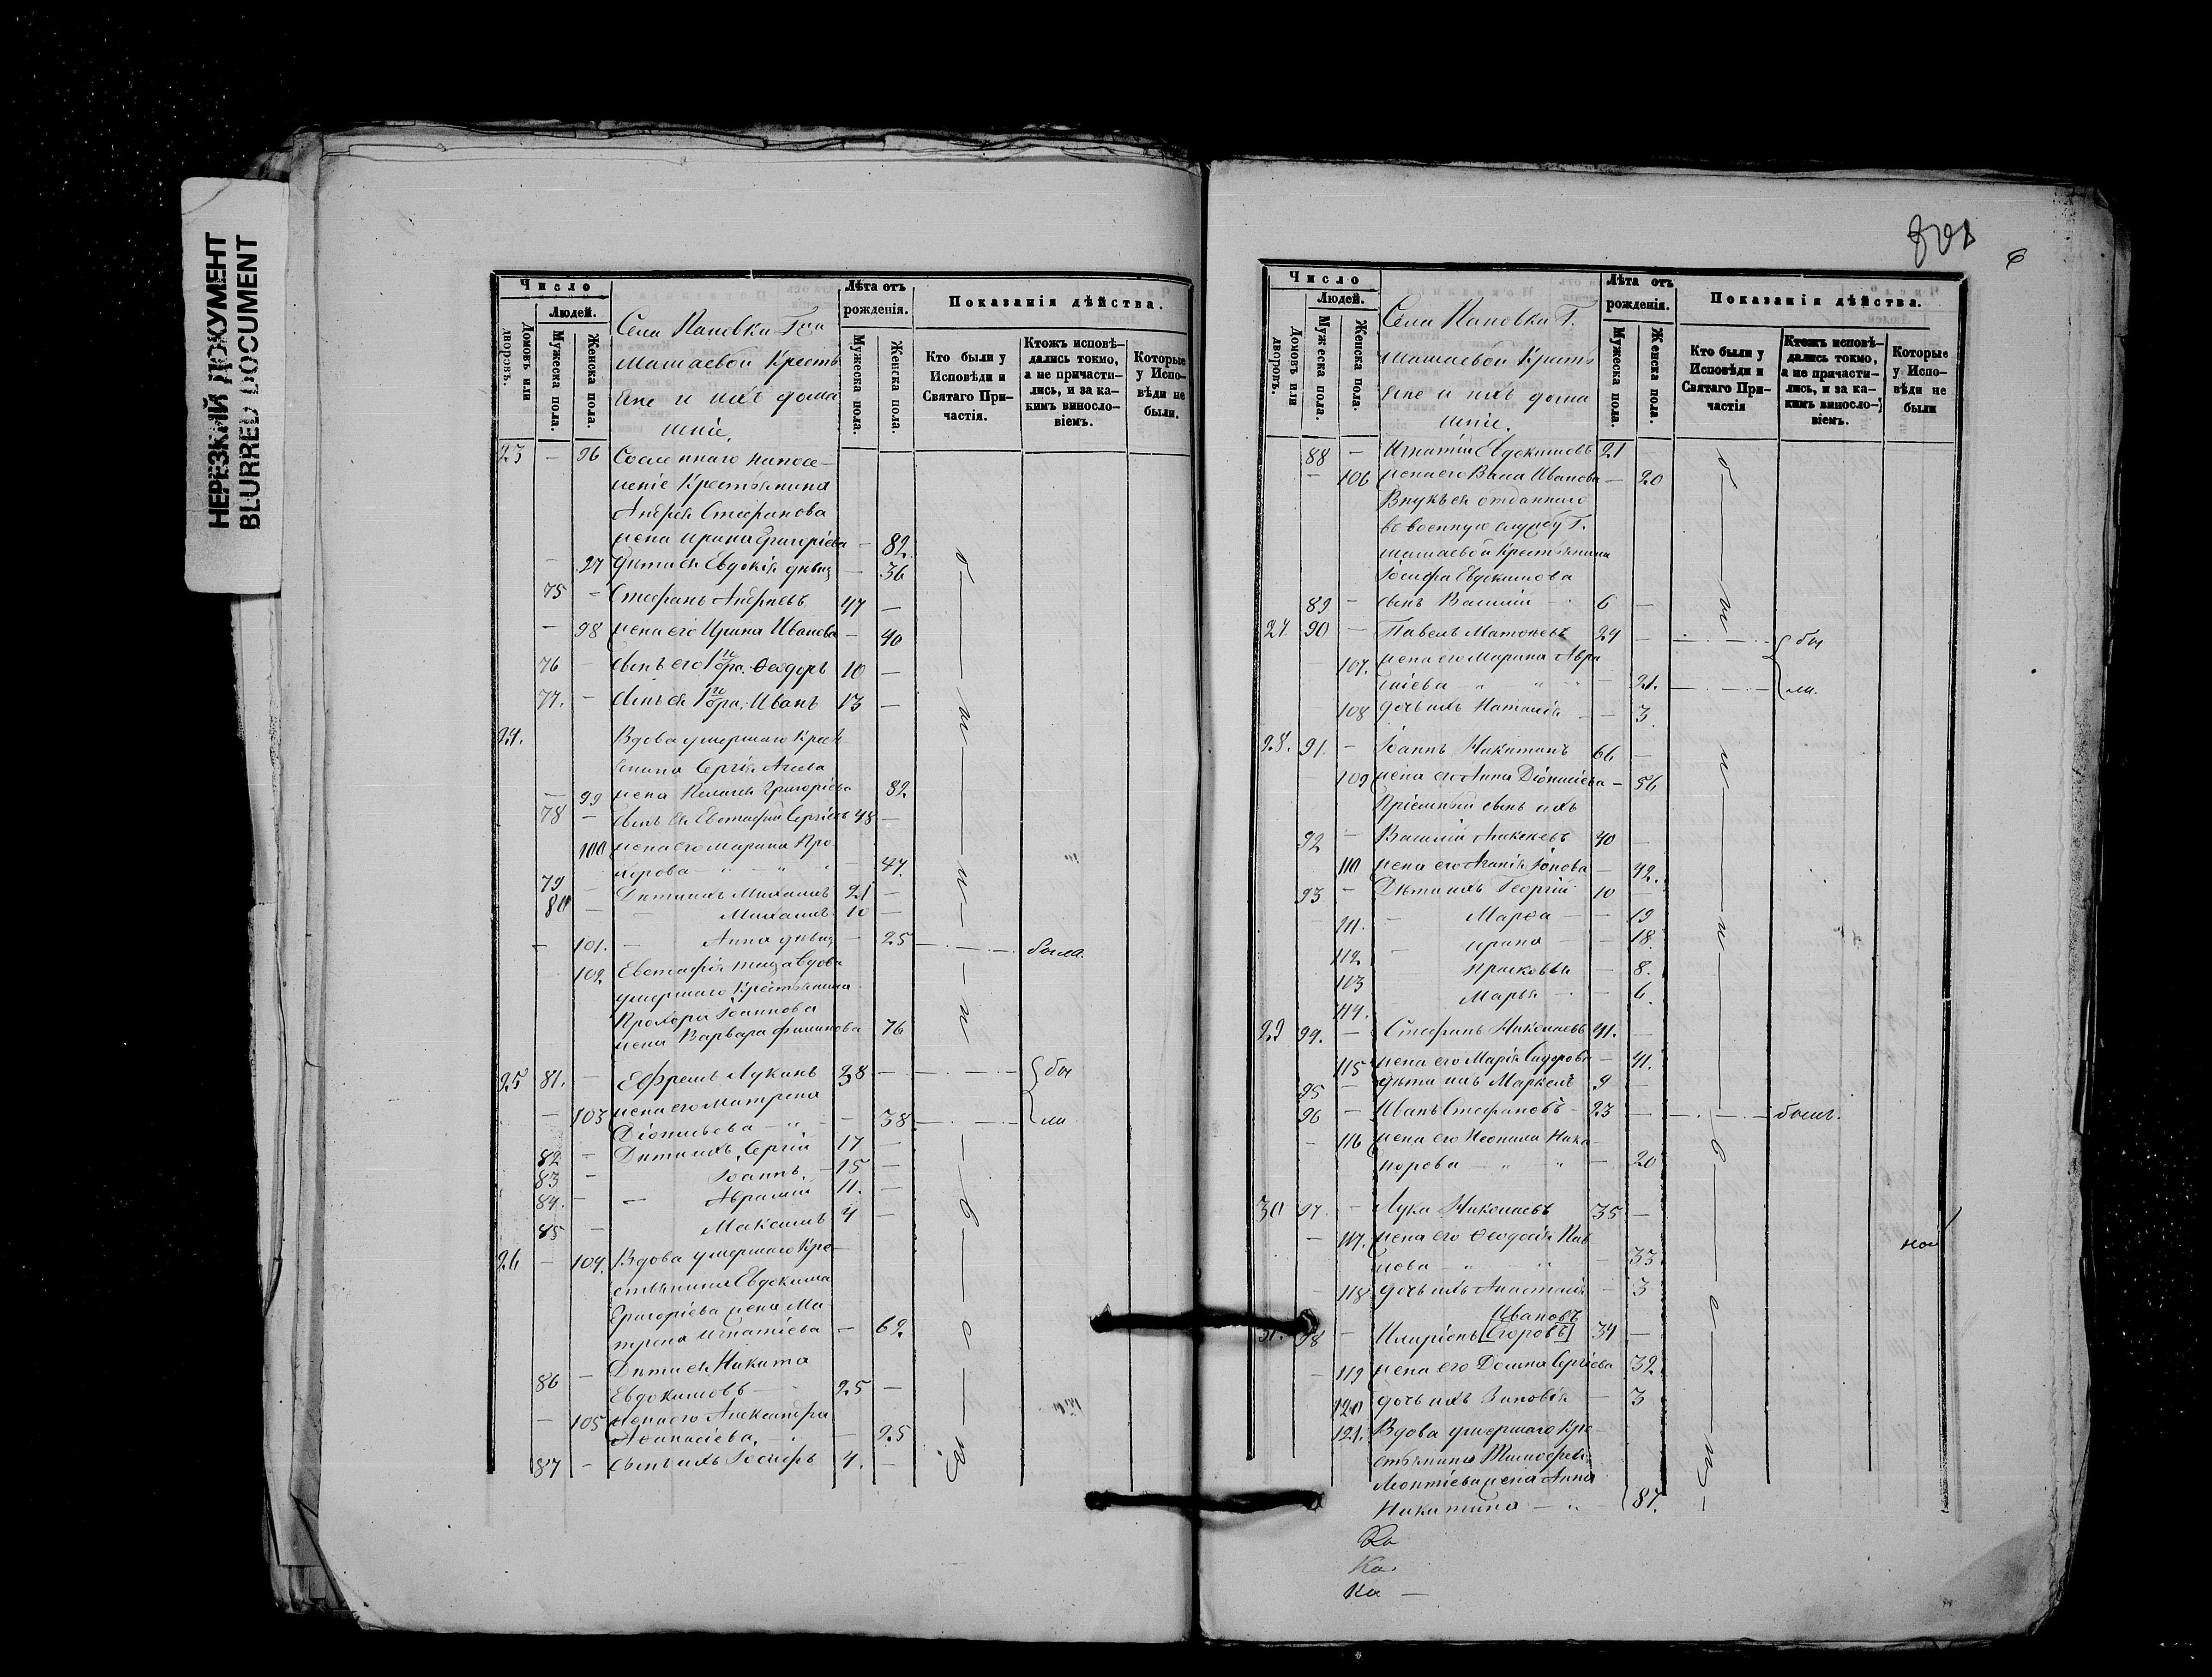 НЕРЕЗКИЙ ДОКУМЕНТ
BLURRED DOCUMENT
Число
Людей.
Домовъ или дворовъ.
Мужеска пола.
Женска пола.
Села Пановки Гпи
Машаевой Кресть
яне и ихъ дома
шніе.
Лѣта отъ рожденія.
Мужеска пола.
Женска пола.
Показанія дѣйства.
Кто были у Исповѣди и Святаго Причастія.
Ктожъ исповѣдались токмо, а не причастились, и за какимъ винословіемъ.
Которые у Исповѣди не были.
23 — 96 Сосланнаго на посе-
леніе Крестьянина
Андрея Стефанова
жена Ирина Григоріева — 82.
— 97 Дѣти ея Евдокія дѣвиц — 36
75 — Стефанъ Андреевъ 47 —
— 98 жена его Ирина Иванова — 40
76 — сынъ его 1го бра. Ѳеодоръ 10 —
77. — сынъ ея 1го бра. Иванъ 13 —
24. Вдова умершаго Крест
янина Сергія
— 99 жена Пелагія Григоріева 82.
78 — сынъ ея Евстафій Сергіевъ 48 —
100 жена его Марина Про
хорова — " — " " — 47.
79 — Дѣти ихъ Михаилъ 21 —
80 — — Михаилъ 10 —
— 101. — Анна дѣвиц — 25 — была.
102 Евстафія теща вдова
умершаго Крестьянина
Прохора Іоаннова
жена Варвара Филипова 76
25 81. — Ефремъ Лукинъ 38 — бы
— 103 жена его Матрена
Діонисьева — " — — 38 — ли
82 — Дѣти ихъ, Сергій 17 —
83 — Іоаннъ, — 15 —
84. — — Абрамій 11. —
85 — Максимъ 4 —
26 — 104. Вдова умершаго Кре—
стьянина Евдокима
Григоріева жена Ма-
трена Игнатіева — 62.
Дѣти ея Никита
86 — Евдокимовъ — 25 —
— 105 жена его Александра
Аѳанасіева, — — 25
87 — сынъ ихъ Іосифъ 4. —
801
6
Число
Людей.
Домовъ или дворовъ.
Мужеска пола.
Женска пола.
Села Пановки Г.
Машаевой Кресть
яне и ихъ дома
шніе.
Лѣта отъ рожденія.
Мужеска пола.
Женска пола.
Показанія дѣйства.
Кто были у Исповѣди и Святаго Причастія
Ктожъ исповѣдались токмо, а не причастились, и за какимъ винословіемъ.
Которые у Исповѣди не были
88 — Игнатій Евдокимовъ 21 —
— 106 жена его Васа Иванова — 20
Внукъ ея отданнаго
въ военную службу Г.
Машаевой Крестьянина
Іосифа Евдокимова
89 — сынъ Василій — 6 —
27. 90 — Павелъ Матвѣевъ 24 — бы
107. жена его Марина Авра
міева — " " — 21. — ли.
108 дочь ихъ Наталія — — 3.
28. 91. — Іоаннъ Никитинъ 66 —
109 жена его Анна Діонисіева — 56
Пріемный сынъ ихъ
92 — Василій Алексѣевъ 40 —
110 жена его Агапія Іонова — 42.
93 — Дѣти ихъ Георгій 10
111. — Марѳа — — 19
112 — Ирина — — 18.
113 Прасковья — 8.
114. Марья — — 6.
29 94. — Стефанъ Николаевъ 41. —
115 жена его Марія Сидорова — 41.
95 — дѣти ихъ Маркелъ 9 —
96 — Иванъ Стефановъ — 23 — былъ.
— 116 жена его Неонила Ника—
норова — " — " — 20
30 97. — Лука Николаевъ 35 —
— 117. жена его Ѳеодосія Пав
лова — " " — 33
— 118 дочь ихъ Анастасія — 3
Ивановъ
31. 98 — Иларіонъ [Егоровъ] 34 —
— 119 жена его Домна Сергіева 32.
120 дочь ихъ Зиновія — 3
121. Вдова умершаго Кре—
стьянина Тимоѳея
Леонтіева жена Анна
Никитина — " — 87.
Ка
Ка —